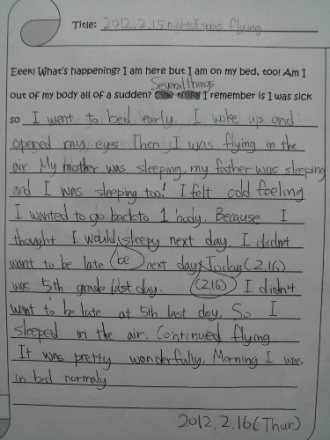 Title: 2012.2.15 I was flying
Eeek! What's happening? I am here but I am on my bed, too! Am I
Several things
out of my body all of a sudden? One thing I remember is I was sick
so I went to bed early. I woke up and
opened my eyes. Then I was flying in the
air. My mother was sleeping, my father was sleeping
and I was sleeping too! I felt odd feeling
I wanted to go back to 1 body. Because I
thought I would sleepy next day. I didn't
want to be late be next day. Today (2.16)
was 5th grade last day. (2.16) I didn't
want to be late at 5th last day. So I
sleeped in the air. Continued flying
It was pretty wonderfully. Morning I was
in bed normaly
2012.2.16 (Thur)